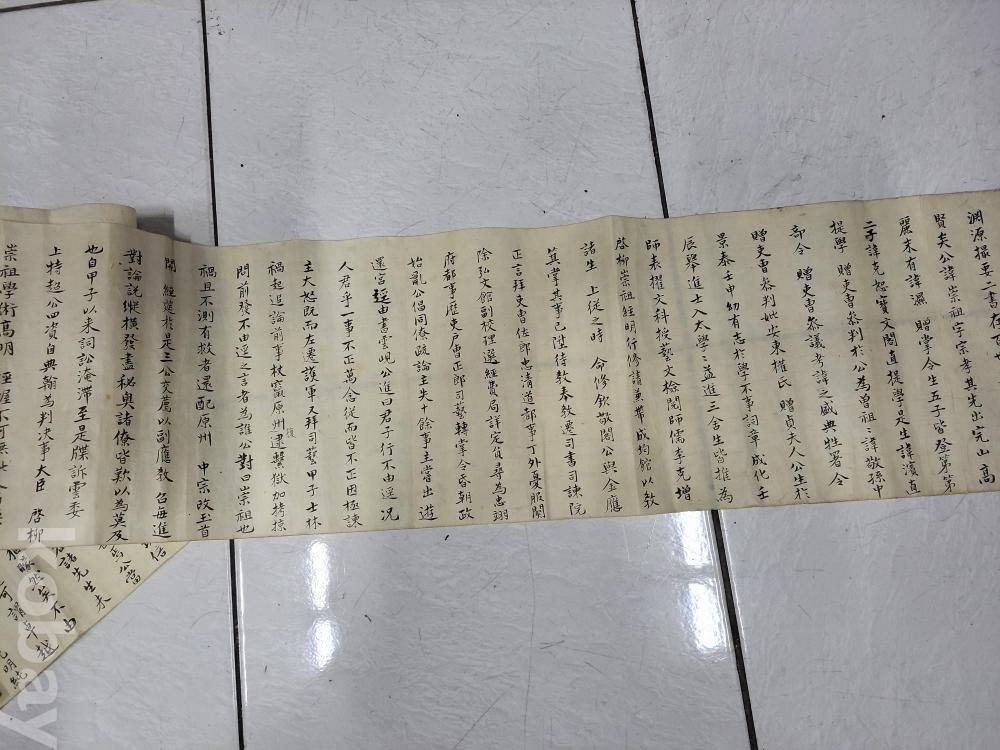 淵源撮要二書存
賢矣公諱崇祖字宗孝其先出完山高
麗末有諱濕 贈掌令生五子皆登第第
二子諱克恕寶文閣直提學是生諱濱直
提學 贈吏曹叅判於公為曾祖祖諱敬孫中
部令 贈吏曹叅議考諱之盛典牲署令
贈吏曹叅判妣安東權氏 贈貞夫人公生於
景泰壬申幼有志於學不事詞章成化壬
辰舉進士入太學學益進三舍生皆推為
師表擢文科授藝文檢閱師儒李克增
啓柳崇祖經明行修請兼帶成均館以教
諸生 上從之時 命修欽敬閣公與金應
箕掌其事已陞侍教奉教遷司書司諫院
正言拜吏曹佐郎忠清道都事丁外憂服闋
除弘文館副校理選經費局詳定官尋為忠翊
府都事歷吏戶曹正郎司藝轉掌令昏朝政
始亂公倡同僚疏論主失十餘事主當出遊
還宮逕由書雲峴公進曰君子行不由逕况
人君乎一事不正萬舍從而皆不正因極諫
主大怒既而左遷護軍又拜司藝甲子士林
禍起追論前事杖竄原州逮繫獄加拷掠
復
問前發不由逕之言者為誰公對曰崇祖也
禍且不測有救者還配原州 中宗改玉首
開 經筵於是三公交薦以副應教 召每進
對論說縱橫發盡秘奧諸僚皆歎以為莫及
也自甲子以来詞訟淹滯至是牒訴雲委
上特超公四資自典翰為判决事大臣 啓柳
崇祖學術高明 經幄不可無
信
公當
諸先生未
矇然矣不由
可謂卓越
明純
kobay